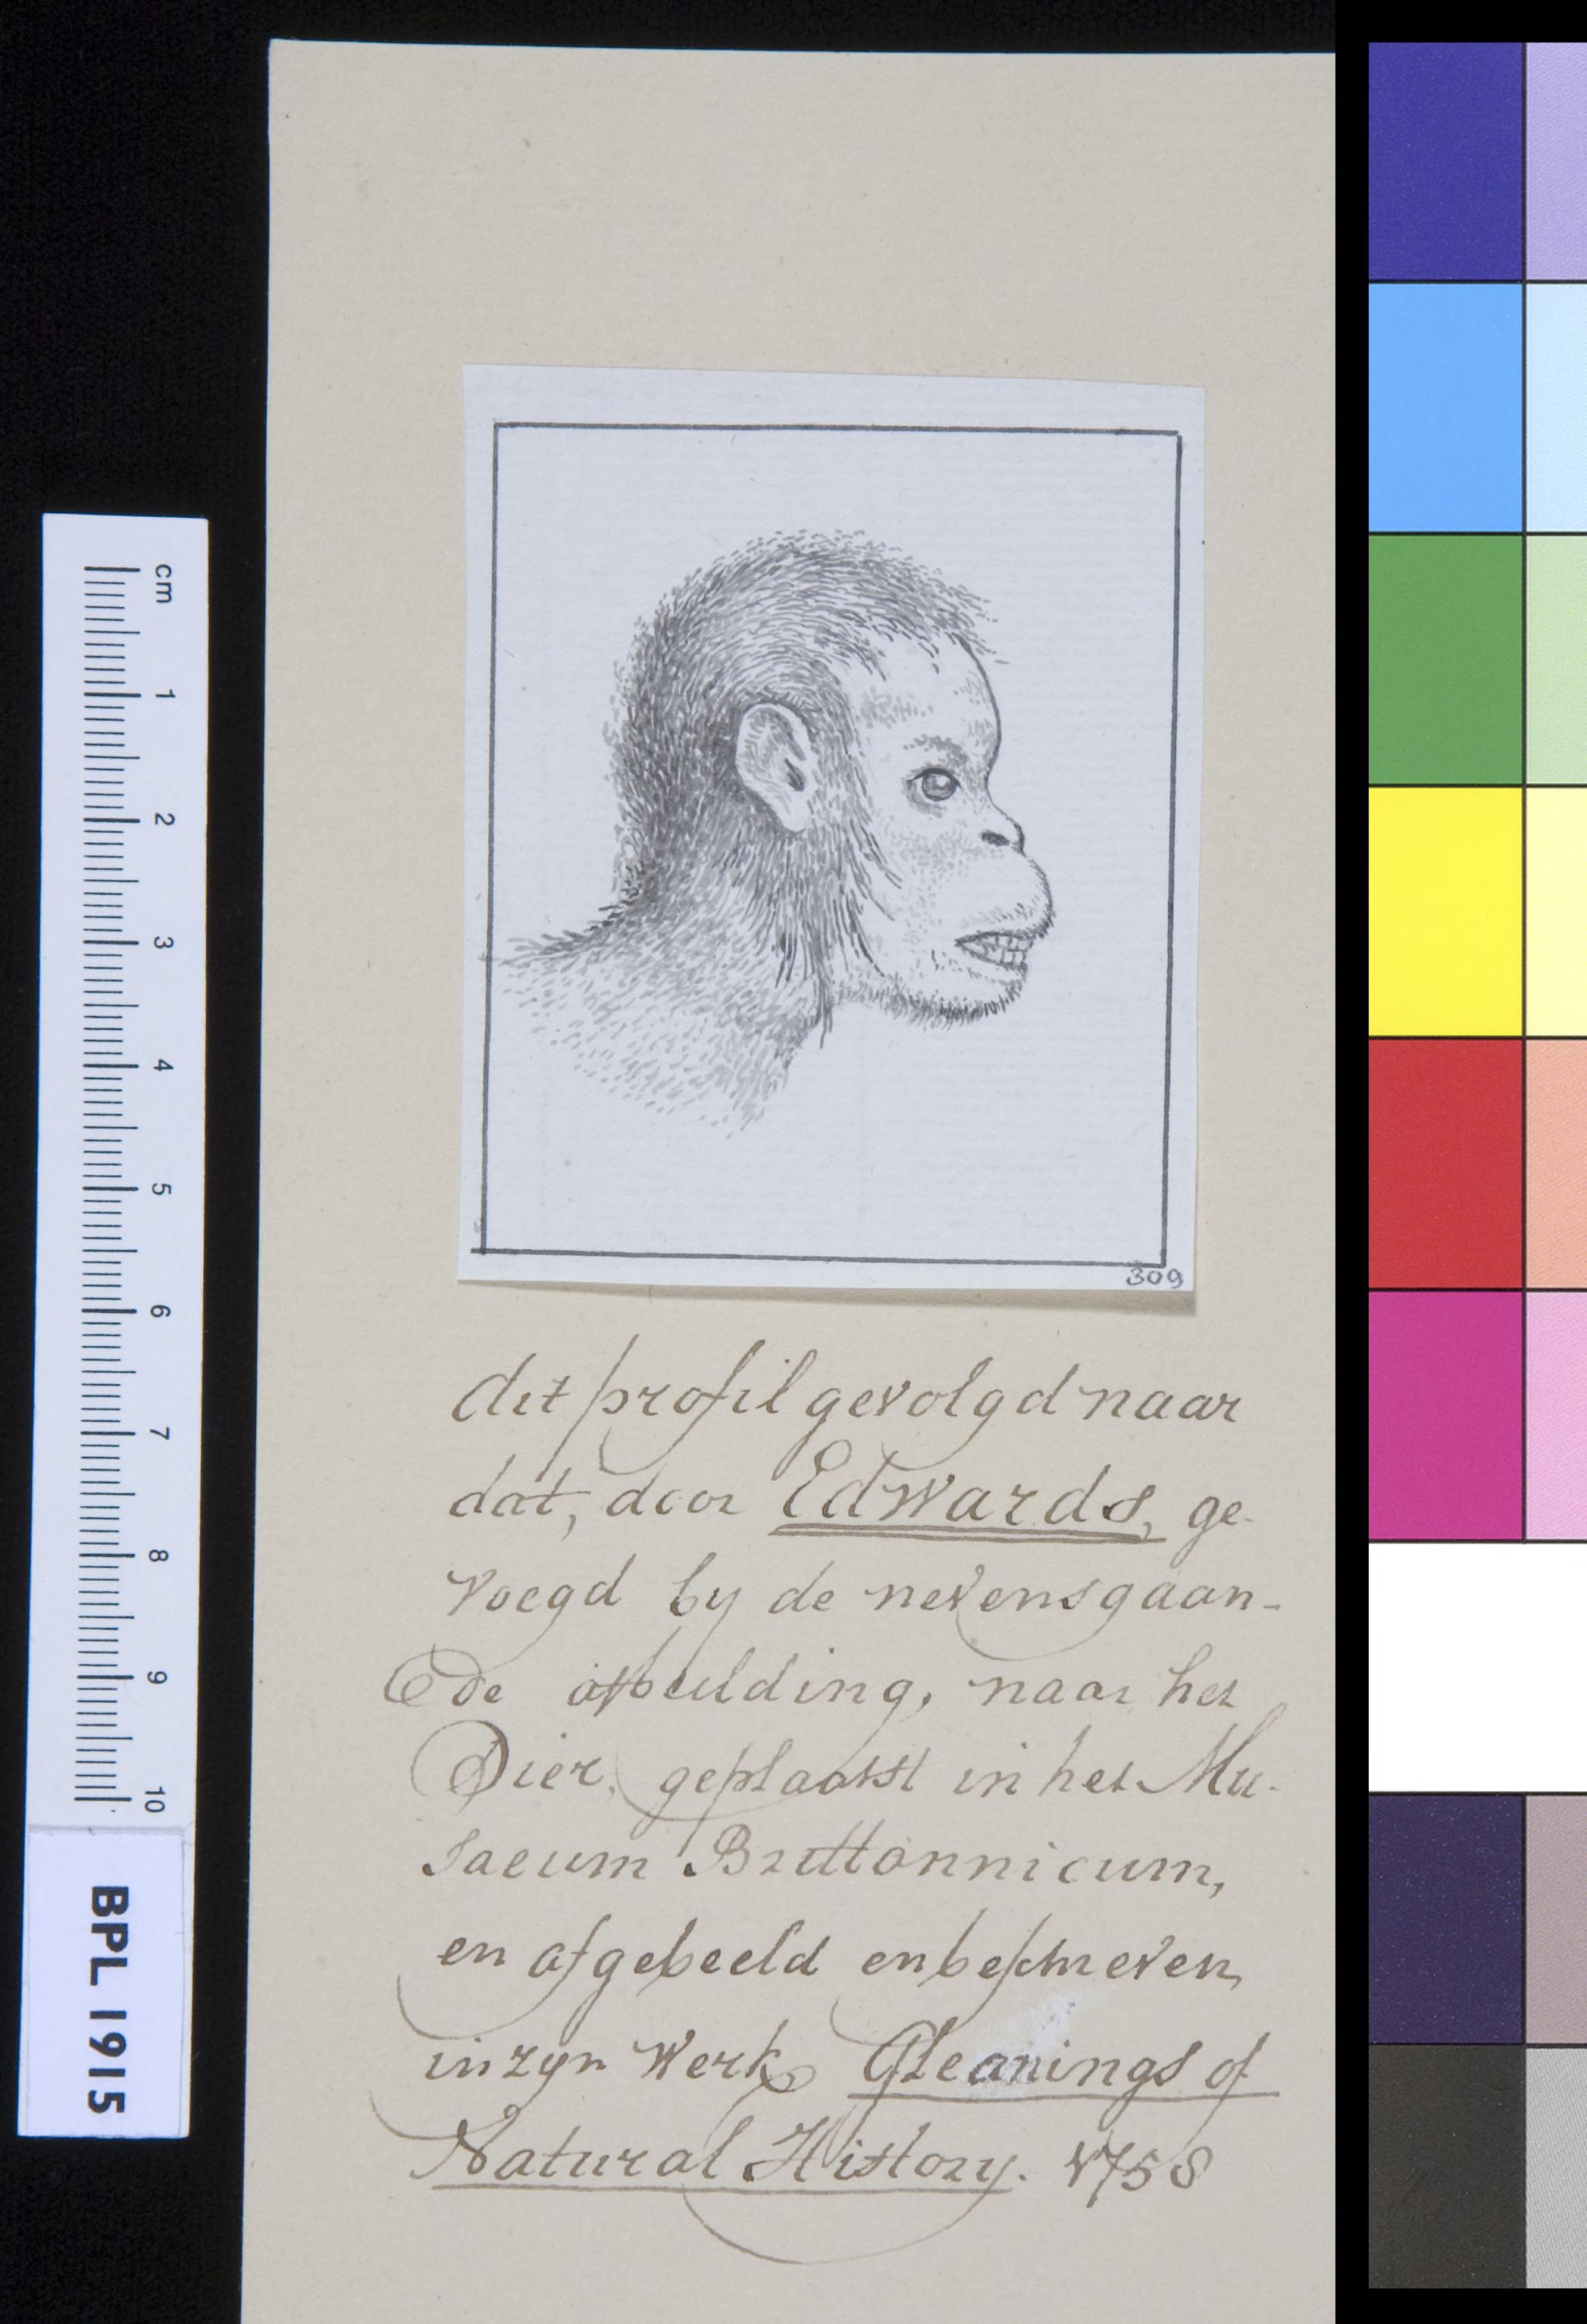 cm
1
2
3
4
5
6
7
8
9
10
BPL 1915
309
dit profil gevolgd naar
dat, door Edwards, ge-
voegd by de nevensgaan-
de afbeelding, naar het
Dier, geplaatst in het Mu-
saeum Brittannicum,
en afgebeeld en beschreven,
in zyn Werk Gleanings of
Natural History. 1758